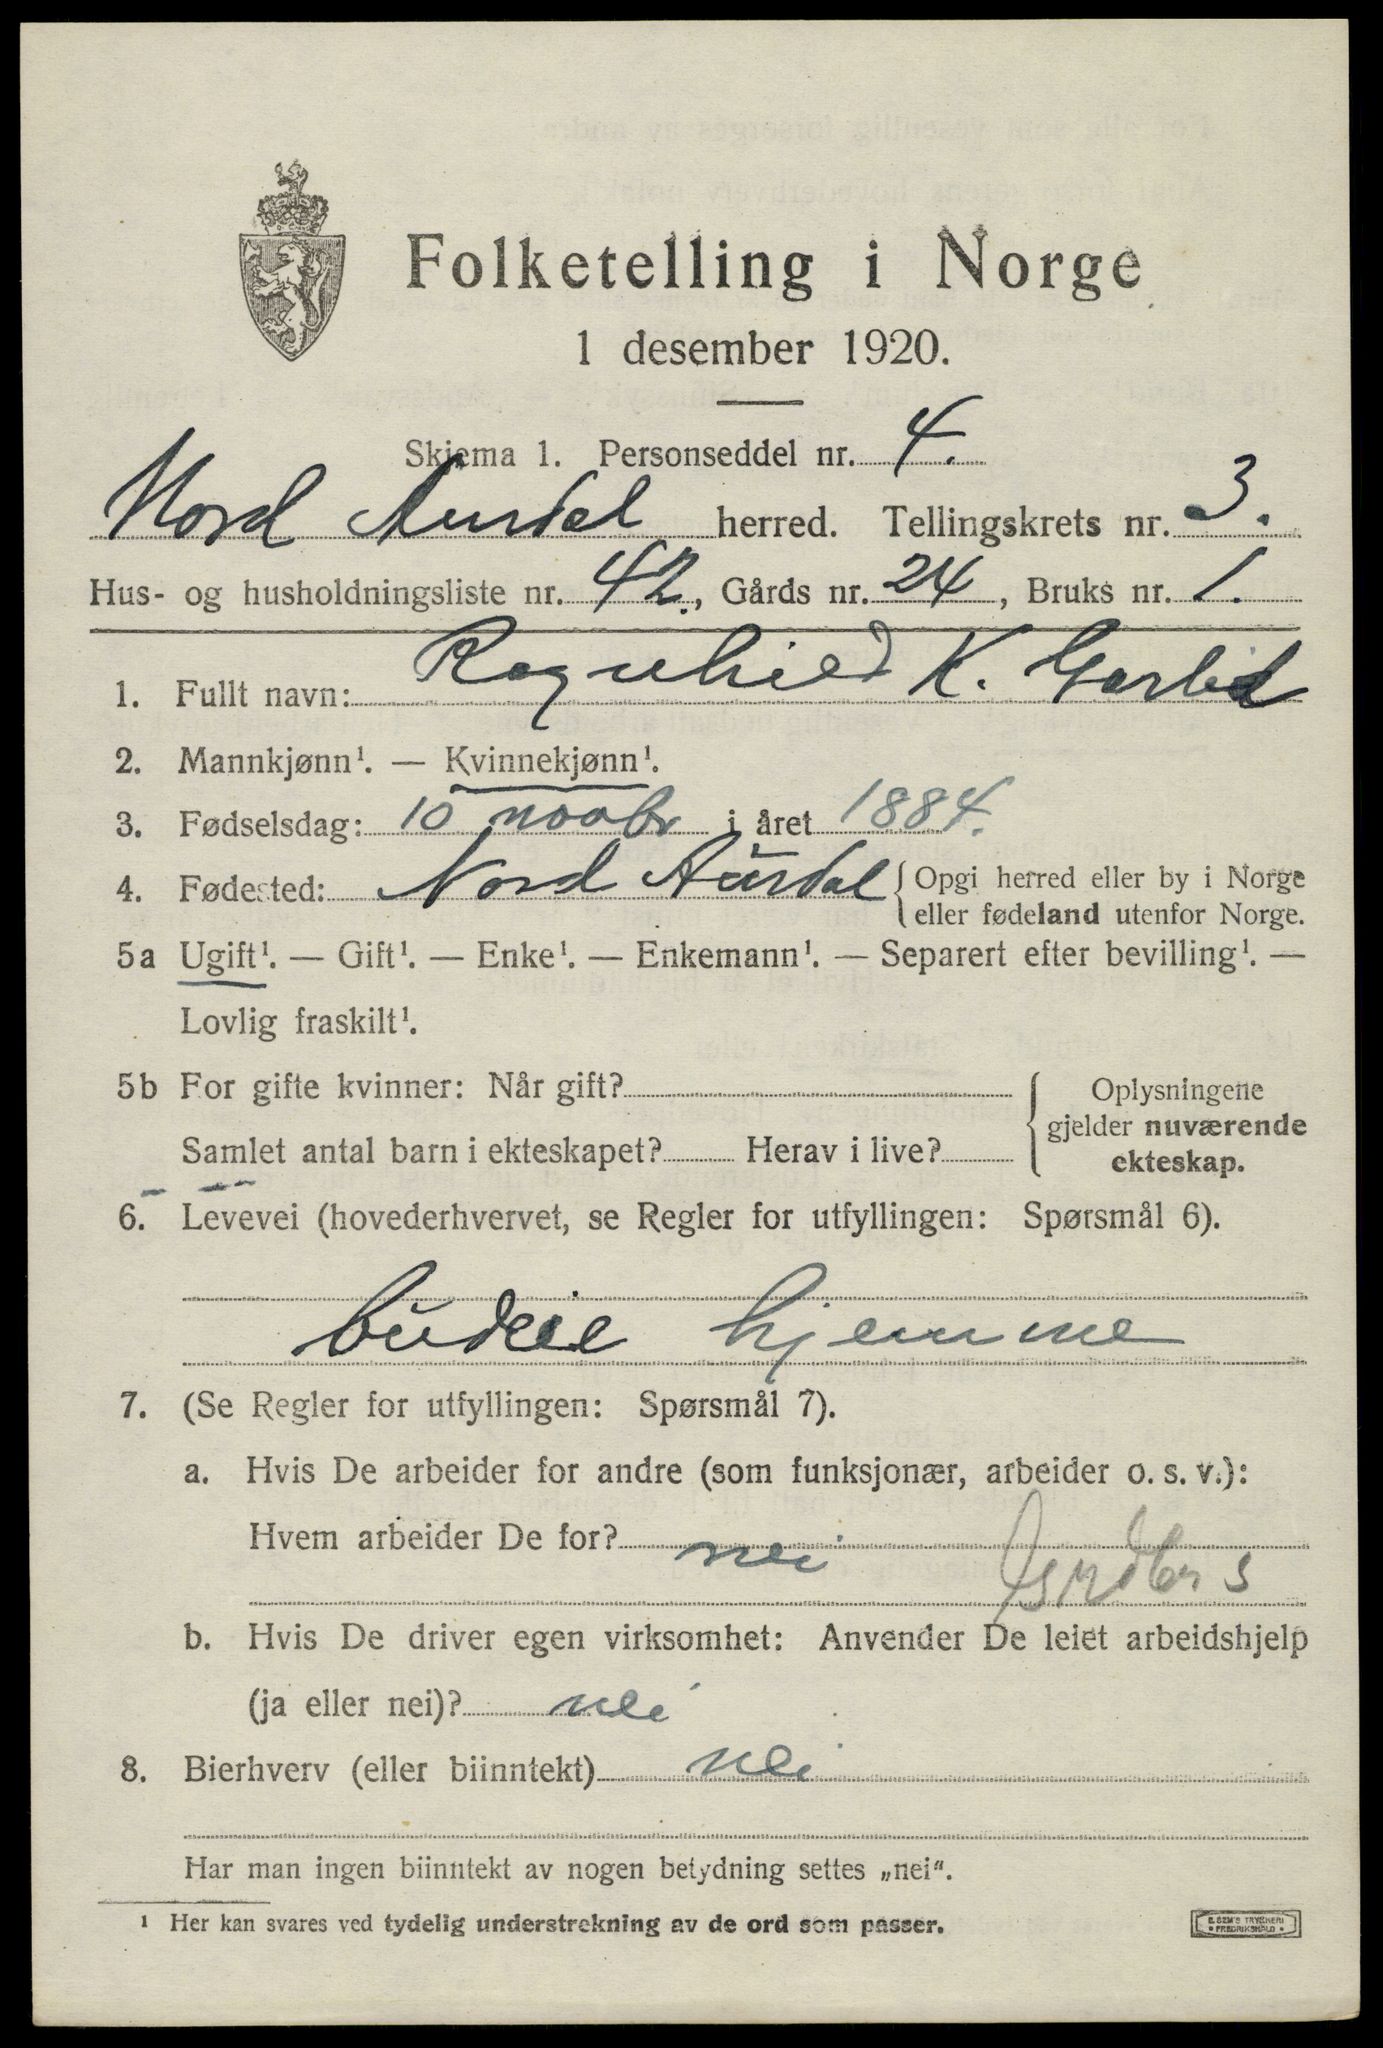 Folketelling i Norge
1 desember 1920.
Skjema 1. Personseddel nr. 4.
Nord Aurdal herred. Tellingskrets nr. 3.
Hus- og husholdningsliste nr. 42., Gårds nr. 24, Bruks nr. 1.
1. Fullt navn: Ragnhild K. Garlid
2. Mannkjønn¹. — Kvinnekjønn¹.
3. Fødselsdag: 10 novbr i året 1884.
4. Fødested: Nord Aurdal { Opgi herred eller by i Norge
eller fødeland utenfor Norge.
5a Ugift¹. — Gift¹. — Enke¹. — Enkemann¹. — Separert efter bevilling¹. —
Lovlig fraskilt¹.
5b For gifte kvinner: Når gift?
Samlet antal barn i ekteskapet? Herav i live?
{ Oplysningene
gjelder nuværende
ekteskap.
6. Levevei (hovederhvervet, se Regler for utfyllingen: Spørsmål 6).
budeie hjemme
7. (Se Regler for utfyllingen: Spørsmål 7).
a. Hvis De arbeider for andre (som funksjonær, arbeider o. s. v.):
Hvem arbeider De for? nei
b. Hvis De driver egen virksomhet: Anvender De leiet arbeidshjelp
(ja eller nei)? nei
8. Bierhverv (eller biinntekt) nei
Har man ingen biinntekt av nogen betydning settes „nei".
¹ Her kan svares ved tydelig understrekning av de ord som passer.
E. SEM'S TRYKKERI
• FREDRIKSHALD •